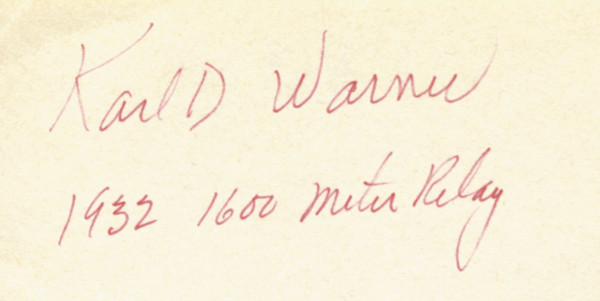 Karl D Warner
1932 1600 Meter Relay